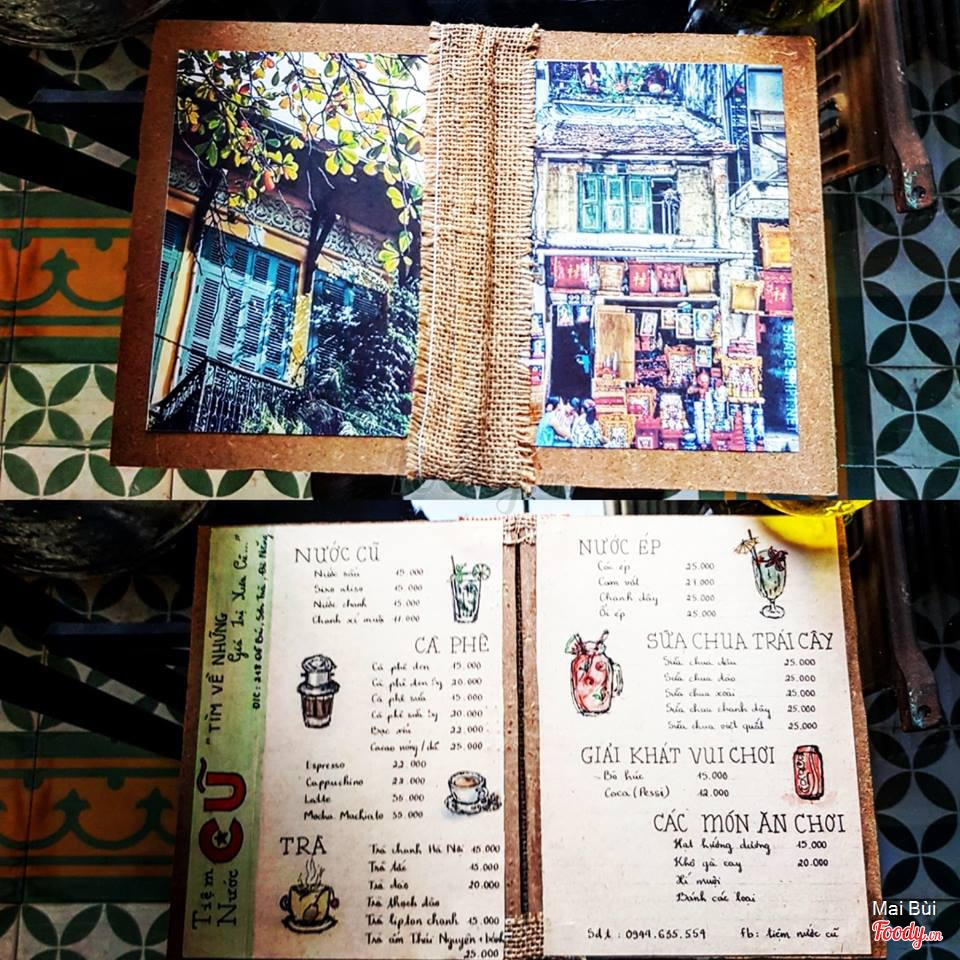 NƯỚC CŨ
Nước sấu 15.000
Siro atiso 15.000
Nước chanh 15.000
Chanh xí muội 17.000
CÀ PHÊ
Cà phê đen 15.000
Cà phê đen Sg 20.000
Cà phê sữa 15.000
Cà phê sữa Sg 20.000
Bạc xỉu 22.000
Cacao nóng / đá 25.000
Espresso 22.000
Cappuchino 23.000
Latte 35.000
Mocha Machiato 35.000
TRÀ
Trà chanh Hà Nội 15.000
Trà tắc 15.000
Trà đào 20.000
Trà thạch đào
Trà lipton chanh 15.000
Trà ấm Thái Nguyên + bánh
25.000
Tiệm
Nước
CŨ
"TÌM VỀ NHỮNG
Giá Trị Xưa Cũ..."
NƯỚC ÉP
Cóc ép 25.000
Cam vắt 27.000
Chanh dây 25.000
Ổi ép 25.000
SỮA CHUA TRÁI CÂY
Sữa chua dâu 25.000
Sữa chua đào 25.000
Sữa chua xoài 25.000
Sữa chua chanh dây 25.000
Sữa chua việt quất 25.000
GIẢI KHÁT VUI CHƠI
Bò húc 15.000
Coca (Pessi) 12.000
CÁC MÓN ĂN CHƠI
Hạt hướng dương 15.000
Khô gà cay 20.000
Xí muội
Bánh các loại
Sdt: 0944.635.559 fb: tiệm nước cũ
Mai Bùi
Foody.vn